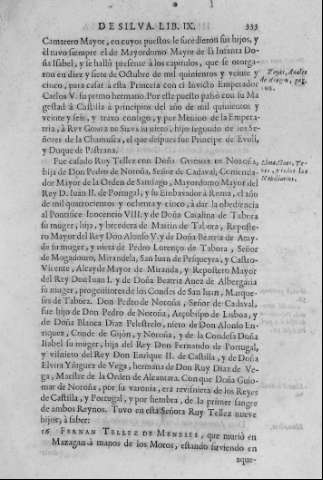 DE SILVA. LIB. IX. 333
Camarero Mayor, en cuyos puestos le sucedieron sus hijos, y
él tuvo siempre el de Mayordomo Mayor de la Infanta Do-
ña Isabel, y se halló presente à los capitulos, que se otorga-
ron en diez y siete de Octubre de mil quinientos y veinte y
cinco, para casar à esta Princesa con el Invicto Emperador
Carlos V. su primo hermano. Por este puesto passò con su Ma-
gestad à Castilla à principios del año de mil quinientos y
veinte y seis, y traxo consigo, y por Menino de la Empera-
triz, à RUY GOMEZ DE SILVA su nieto, hijo segundo de los Se-
ñores de la Chamusca, el que despues fue Principe de Evoli,
y Duque de Pastrana.
Fue casado Ruy Tellez con DOÑA GUIOMAR DE NOROÑA,
hija de Don Pedro de Noroña, Señor de Cadaval, Comenda-
dor Mayor de la Orden de Santiago, Mayordomo Mayor del
Rey D. Juan II. de Portugal, y su Embaxador à Roma, el año
de mil quatrocientos y ochenta y cinco, à dar la obediencia
al Pontifice Inocencio VIII. y de Doña Catalina de Tabora
su muger, hija, y heredera de Martin de Tabora, Reposte-
ro Mayor del Rey Don Alonso V. y de Doña Beatriz de Atay-
de su muger, y nieta de Pedro Lorenço de Tabora, Señor
de Mogadouro, Mirandela, San Juan de Pesqueyra, y Castro-
Vicente, Alcayde Mayor de Miranda, y Repostero Mayor
del Rey Don Juan I. y de Doña Beatriz Anez de Albergaria
su muger, progenitores de los Condes de San Juan, Marque-
ses de Tabora. Don Pedro de Noroña, Señor de Cadaval,
fue hijo de Don Pedro de Noroña, Arçobispo de Lisboa, y
de Doña Blanca Diaz Pelestrelo, nieto de Don Alonso En-
riquez, Conde de Gijòn, y Noroña, y de la Condesa Doña
Isabel su muger, hija del Rey Don Fernando de Portugal,
y visnieto del Rey Don Enrique II. de Castilla, y de Doña
Elvira Yañguez de Vega, hermana de Don Ruy Diaz de Ve-
ga, Maestre de la Orden de Alcantara. Con que Doña Guio-
mar de Noroña, por su varonia, era revisnieta de los Reyes
de Castilla, y Portugal, y por hembra, de la primer sangre
de ambos Reynos. Tuvo en esta Señora Ruy Tellez nueve
hijos, à saber:
16 FERNAN TELLEZ DE MENESES, que muriò en
Mazagan à manos de los Moros, estando sirviendo en
aque-